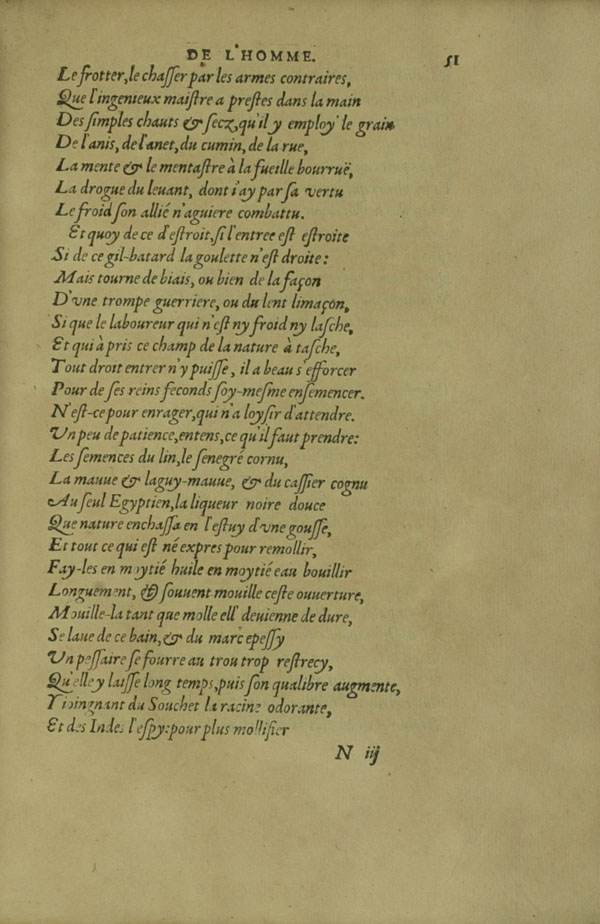 DE L'HOMME. 51
Le frotter, le chasser par les armes contraires,
Que l'ingenieux maistre a prestes dans la main
Des simples chauts & secz, qu'il y employ' le grain
De l'anis, de l'anet, du cumin, de la rue,
La mente & le mentastre à la fueille bourruë,
La drogue du leuant, dont i'ay par sa vertu
Le froid son allié n'aguiere combattu.
Et quoy de ce d'estroit, si l'entree est estroite
Si de ce gil-batard la goulette n'est droite:
Mais tourne de biais, ou bien de la façon
D'vne trompe guerriere, ou du lent limaçon,
Si que le laboureur qui n'est ny froid ny lasche,
Et qui à pris ce champ de la nature à tasche,
Tout droit entrer n'y puisse, il a beau s'efforcer
Pour de ses reins feconds soy-mesme ensemencer.
N'est-ce pour enrager, qui n'a loysir d'attendre.
Vn peu de patience, entens, ce qu'il faut prendre:
Les semences du lin, le senegré cornu,
La mauue & laguy-mauue, & du cassier cognu
Au seul Egyptien, la liqueur noire douce
Que nature enchassa en l'estuy d'vne gousse,
Et tout ce qui est né expres pour remollir,
Fay-les en moytié huile en moytié eau bouillir
Longuement, & souuent mouille ceste ouuerture,
Mouille-la tant que molle ell' deuienne de dure,
Se laue de ce bain, & du marc epessy
Vn pessaire se fourre au trou trop restrecy,
Qu'elle y laisse long temps, puis son qualibre augmente,
Y ioingnant du Souchet la racine odorante,
Et des Indes l'espy: pour plus mollifier
N iij